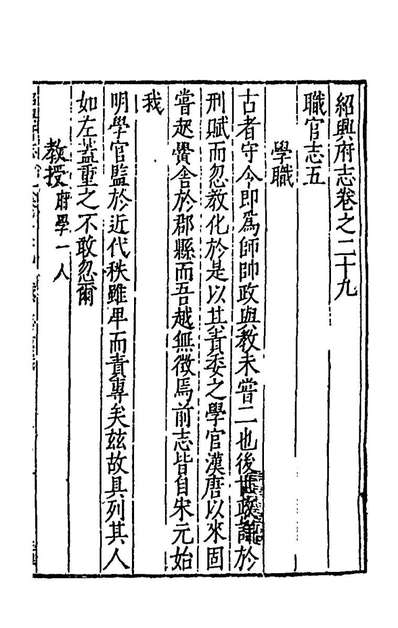 紹興府志卷之二十九
職官志五
學職
古者守令即爲師帥政與教未嘗二也後世政謹於
刑賦而忽敎化於是以其責委之學官漢唐以來固
嘗起黌舍於郡縣而吾越無徵焉前志皆自宋元始
我
明學官監於近代秩雖卑而責專矣茲故具列其人
如左蓋重之不敢忽爾
教授府學一人